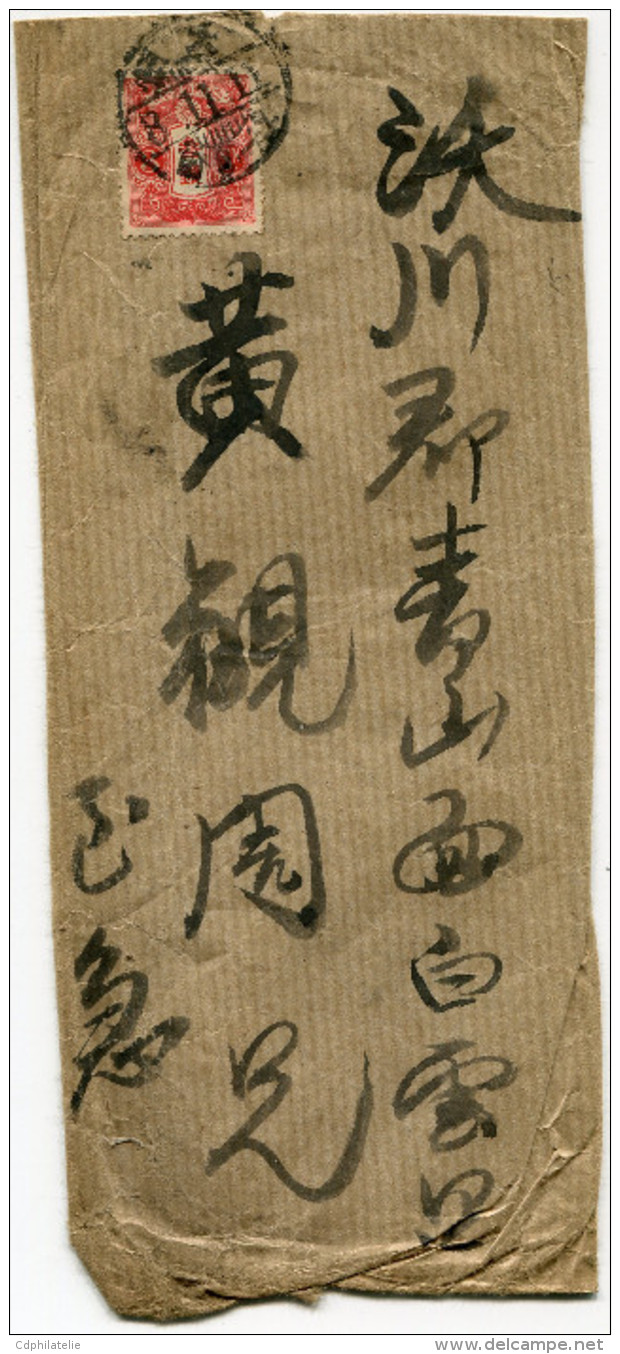 沃川郡青山面白雲里
黃觀周兄
至急
8.11.1
Cdphilatelie
www.delcampe.net